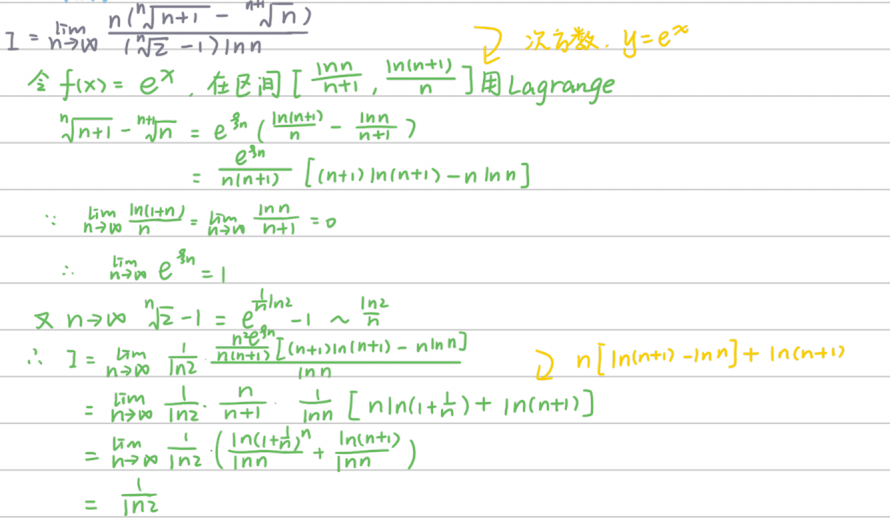 I = lim_{n→∞} n(ⁿ√(n+1) - ⁿ⁺¹√n) / ((ⁿ√2 - 1) ln n)
次方数. y=e^x
令 f(x) = e^x, 在区间 [ln n/(n+1), ln(n+1)/n] 用 Lagrange
ⁿ√(n+1) - ⁿ⁺¹√n = e^{ξn} (ln(n+1)/n - ln n/(n+1))
= e^{ξn}/(n(n+1)) [(n+1)ln(n+1) - n ln n]
∵ lim_{n→∞} ln(1+n)/n = lim_{n→∞} ln n/(n+1) = 0
∴ lim_{n→∞} e^{ξn} = 1
又 n→∞ ⁿ√2 - 1 = e^{(1/n) ln2} - 1 ~ ln2/n
∴ I = lim_{n→∞} 1/ln2 · (n²e^{ξn}/(n(n+1)) [(n+1)ln(n+1) - n ln n]) / ln n
n[ln(n+1) - ln n] + ln(n+1)
= lim_{n→∞} 1/ln2 · n/(n+1) · 1/ln n [n ln(1+1/n) + ln(n+1)]
= lim_{n→∞} 1/ln2 · (ln(1+1/n)^n/ln n + ln(n+1)/ln n)
= 1/ln2